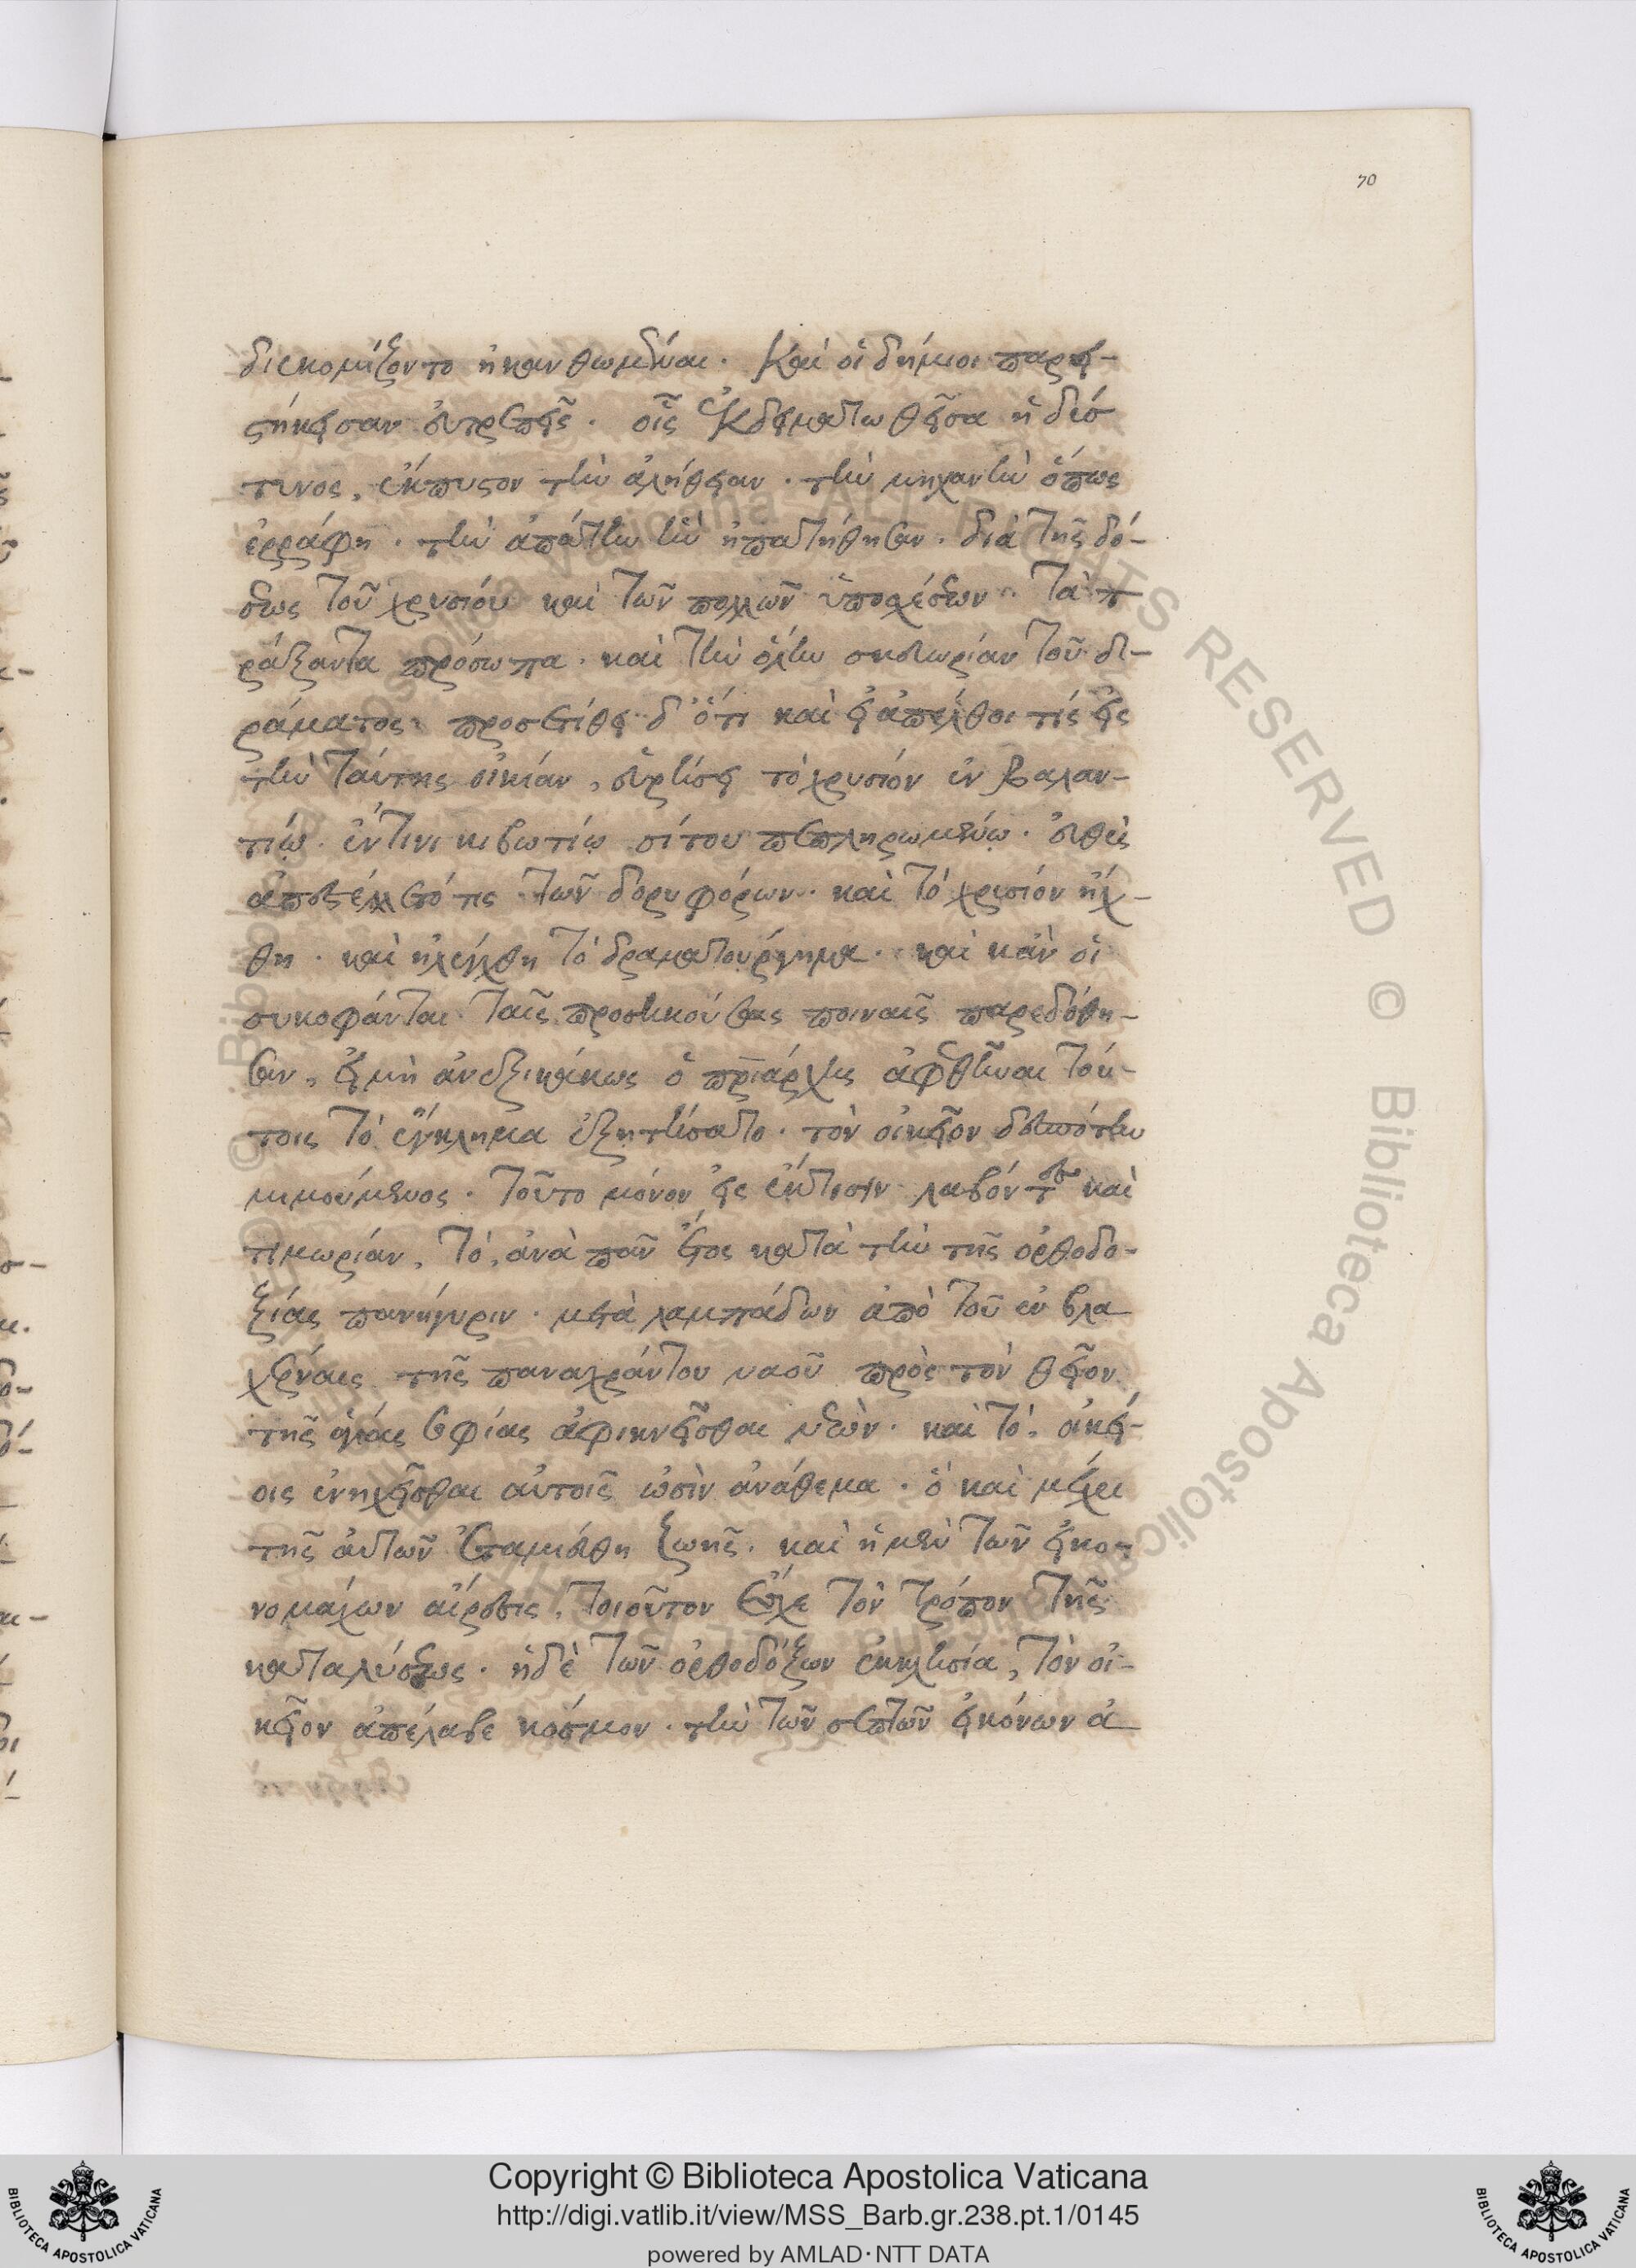 70
διεκομίζοντο ἠκανθωμέναι. Καὶ οἱ δήμιοι παρει-
στήκεισαν εὐτρεπεῖς. οἷς ἐκδειματωθεῖσα ἡ δεί-
τινος, ἔκπυστον τὴν ἀλήθειαν. τὴν μηχανὴν ὅπως
ἐρράφη. τὴν ἀπάτην ἣν ἠπατήθησαν. διὰ τῆς δό-
σεως τοῦ χρυσίου καὶ τῶν πολλῶν ὑποσχέσεων. Τὰ π
ράξαντα πρόσωπα. καὶ τὴν ὅλην σκευωρίαν τοῦ δ-
ράματος. προσετίθει δ' ὅτι καὶ εἰ ἀπέλθοι τίς εἰς
τὴν ταύτης οἰκίαν, εὑρήσει τὸ χρυσίον ἐν βαλαν-
τίῳ. ἔν τινι κιβωτίῳ σίτου πεπληρωμένῳ. εὐθὺς
ἀπεστέλλετό τις τῶν δορυφόρων. καὶ τὸ χρυσίον ἤχ-
θη. καὶ ἠλέγχθη τὸ δραματούργημα. καὶ κἂν οἱ
συκοφάνται ταῖς προσηκούσαις ποιναῖς παρεδόθη-
σαν, εἰ μὴ ἀνεξικάκως ὁ πριάρχης ἀφεθῆναι τού-
τοις τὸ ἔγκλημα ἐξῃτήσατο. τὸν οἰκεῖον δεσπότην
μιμούμενος. τοῦτο μόνον εἰς ἔκτισιν λαβόντας καὶ
τιμωρίαν, τὸ, ἀνὰ πᾶν ἔτος κατὰ τὴν τῆς ὀρθοδο-
ξίας πανήγυριν. μετὰ λαμπάδων ἀπὸ τοῦ ἐν βλα
χέρναις τῆς παναχράντου ναοῦ πρὸς τὸν θεῖον
τῆς ἁγίας σοφίας ἀφικνεῖσθαι νεών. καὶ τὸ. οἰκεί-
οις ἐνηχεῖσθαι αὐτοῖς ὠσὶν ἀνάθεμα. ὃ καὶ μέχρι
τῆς αὐτῶν ἐταμιεύθη ζωῆς. καὶ ἡ μὲν τῶν εἰκο-
νομάχων αἵρεσις, τοιοῦτον ἔσχε τὸν τρόπον τῆς
καταλύσεως. ἡ δὲ τῶν ὀρθοδόξων ἐκκλησία, τὸν οἰ-
κεῖον ἀπέλαβε κόσμον. τὴν τῶν σεπτῶν εἰκόνων ἀ
Copyright © Biblioteca Apostolica Vaticana
http://digi.vatlib.it/view/MSS_Barb.gr.238.pt.1/0145
powered by AMLAD·NTT DATA